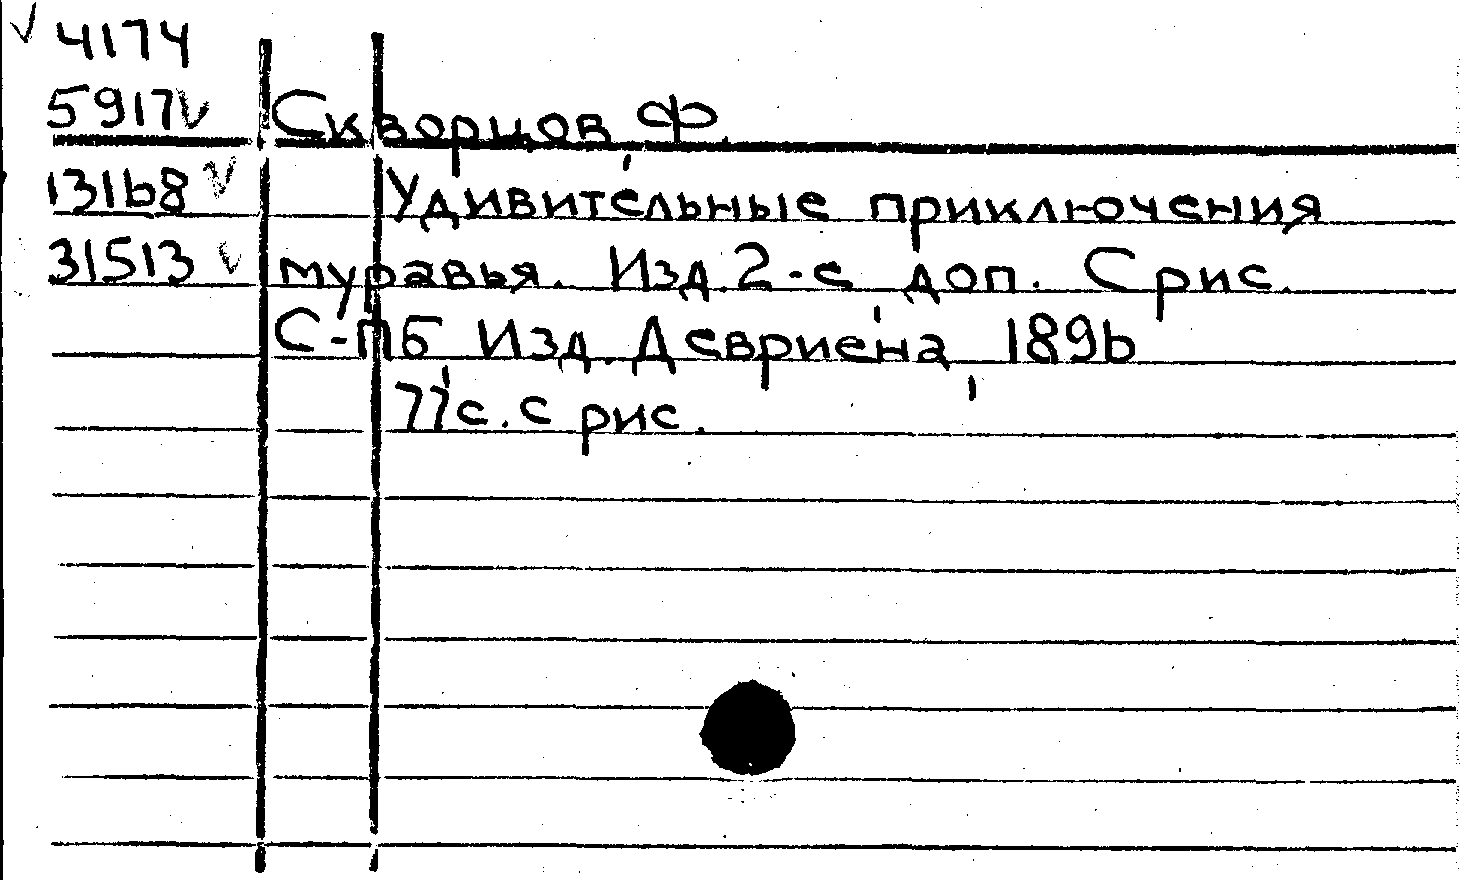 √ 4174
5917 √ Скворцов, Ф.
13168 √ Удивительные приключения
31513 √ муравья. Изд. 2-е, доп. С рис.
С-ПБ, Изд. Девриена, 1896
77 с. с рис.